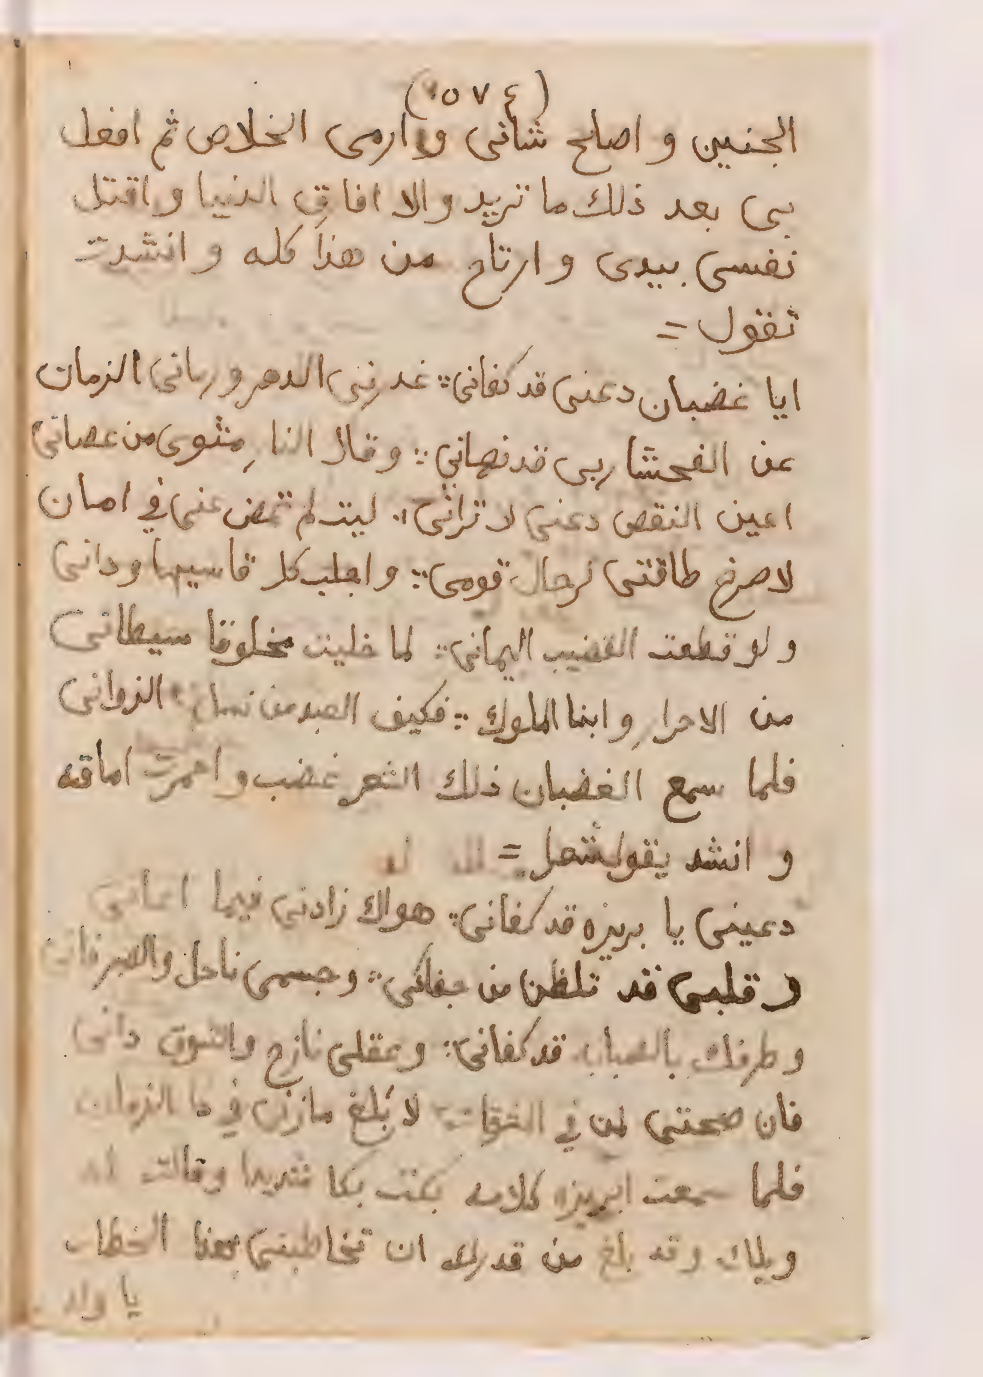 (٥٧٤)
الجنين و اصلح شانى و ارمى الخلاص ثم افعل
بى بعد ذلك ما تريد والا افارق الدنيا واقتل
نفسى بيدى و ارتاح من هذا كله و انشدت
تقول =
ايا غضبان دعنى قد كفانى ∴ غدرنى الدهر ورمانى الزمان
عن الفحشا ربى قد نهانى ∴ وقال النار مثوى من عصانى
اعين النقص دعنى لا ترانى ∴ ليت لم تمض عنى في امان
لاصرخ طاقتى لرجال قومى ∴ و اجلب كل قاسيها ودانى
و لو قطعت القضيب اليمانى ∴ لما خليت مخلوقا سيطانى
من الاحرار و ابنا الملوك ∴ فكيف العبد من نسل الزوانى
فلما سمع الغضبان ذلك الشعر غضب و احمرت اماقه
و انشد يقول شعر =
دعينى يا بريزه قد كفانى ∴ هواك زادنى فيما اعانى
و قلبى قد تلظى من جفاكى ∴ وجسمى ناحل والصبر فانى
وطرفك بالصبابه قد كفانى ∴ وعقلى نازح والشوق دانى
فان صحتى لمن في لا بلغ في ذا الزمان
فلما سمعت ابريزه كلامه بكت بكا شديدا وقالت له
ويلك وقد بلغ من قدرك ان تخاطبنى بهذا الخطاب
يا ولد